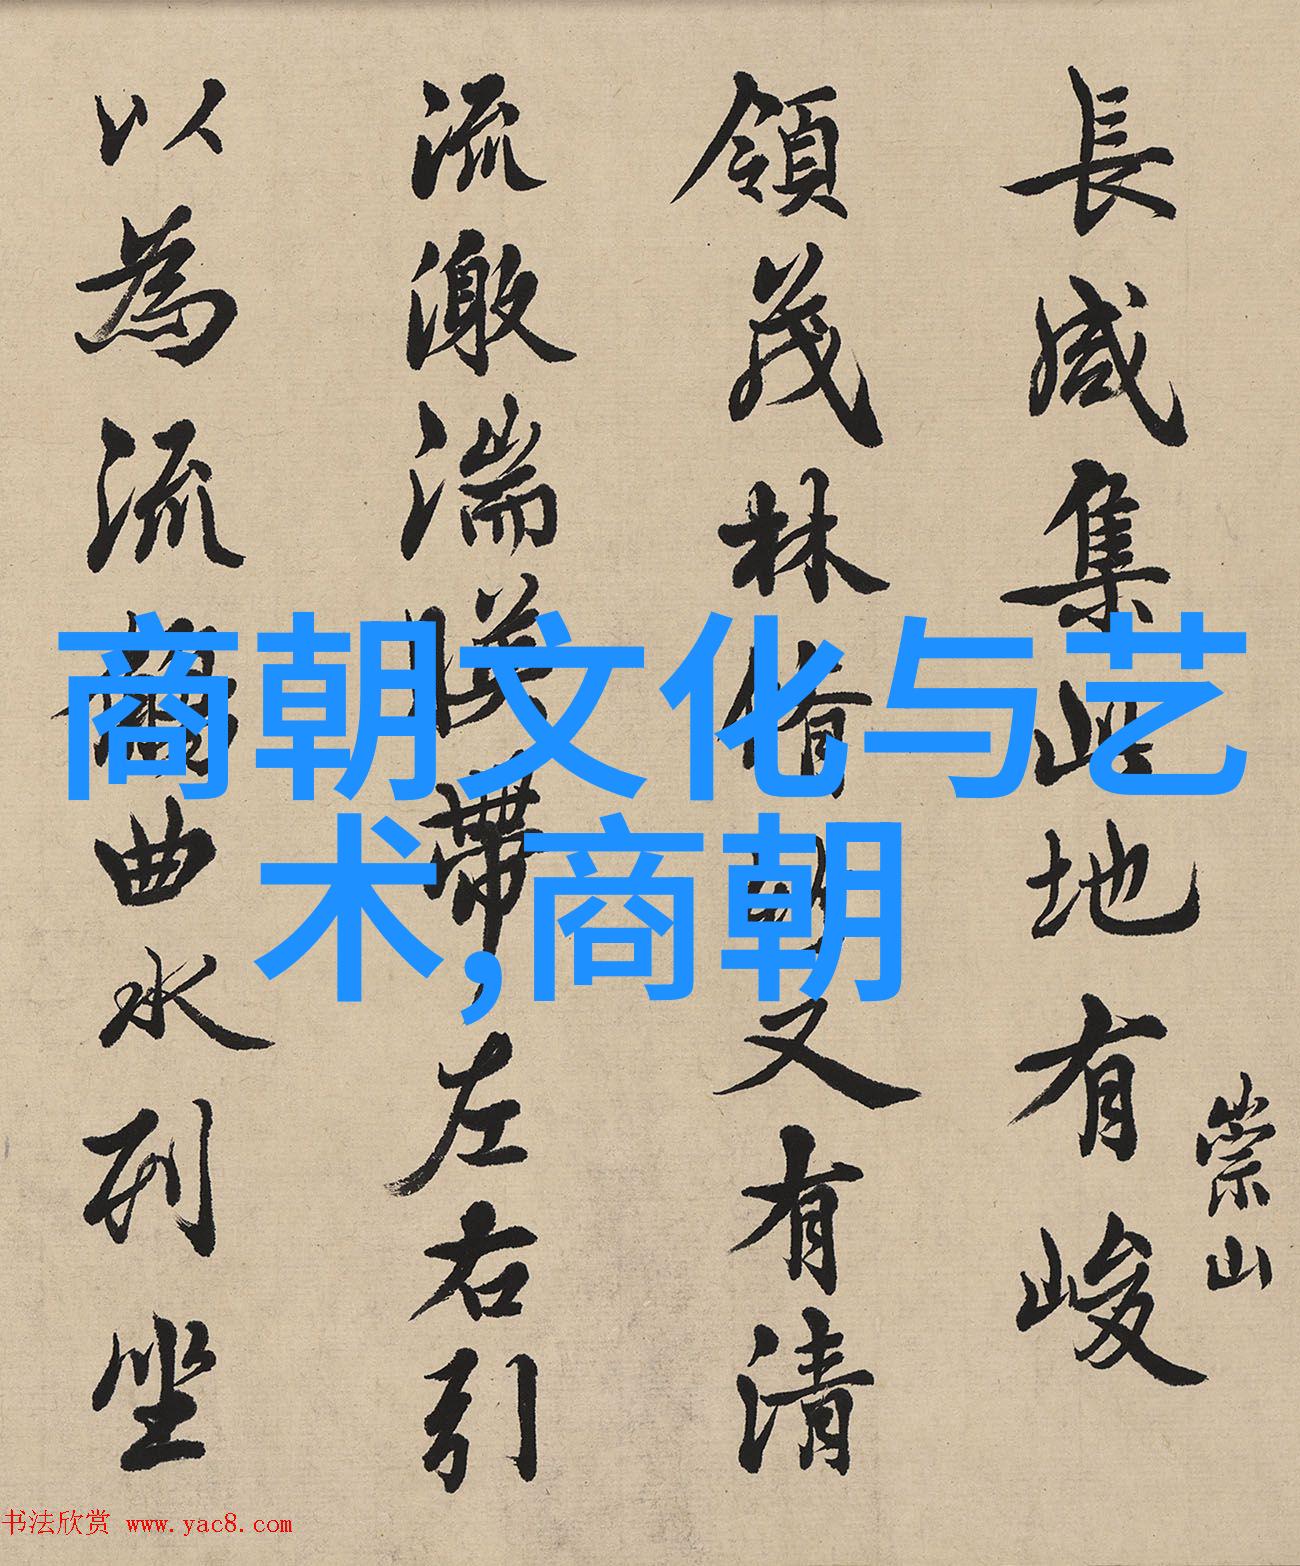 長咸集此地有峻
崇山
領茂林脩竹又有清
流激湍暎帶左右引
以為流觴曲水列坐
商朝文化与艺
术,商朝
书法欣赏 www.yac8.com